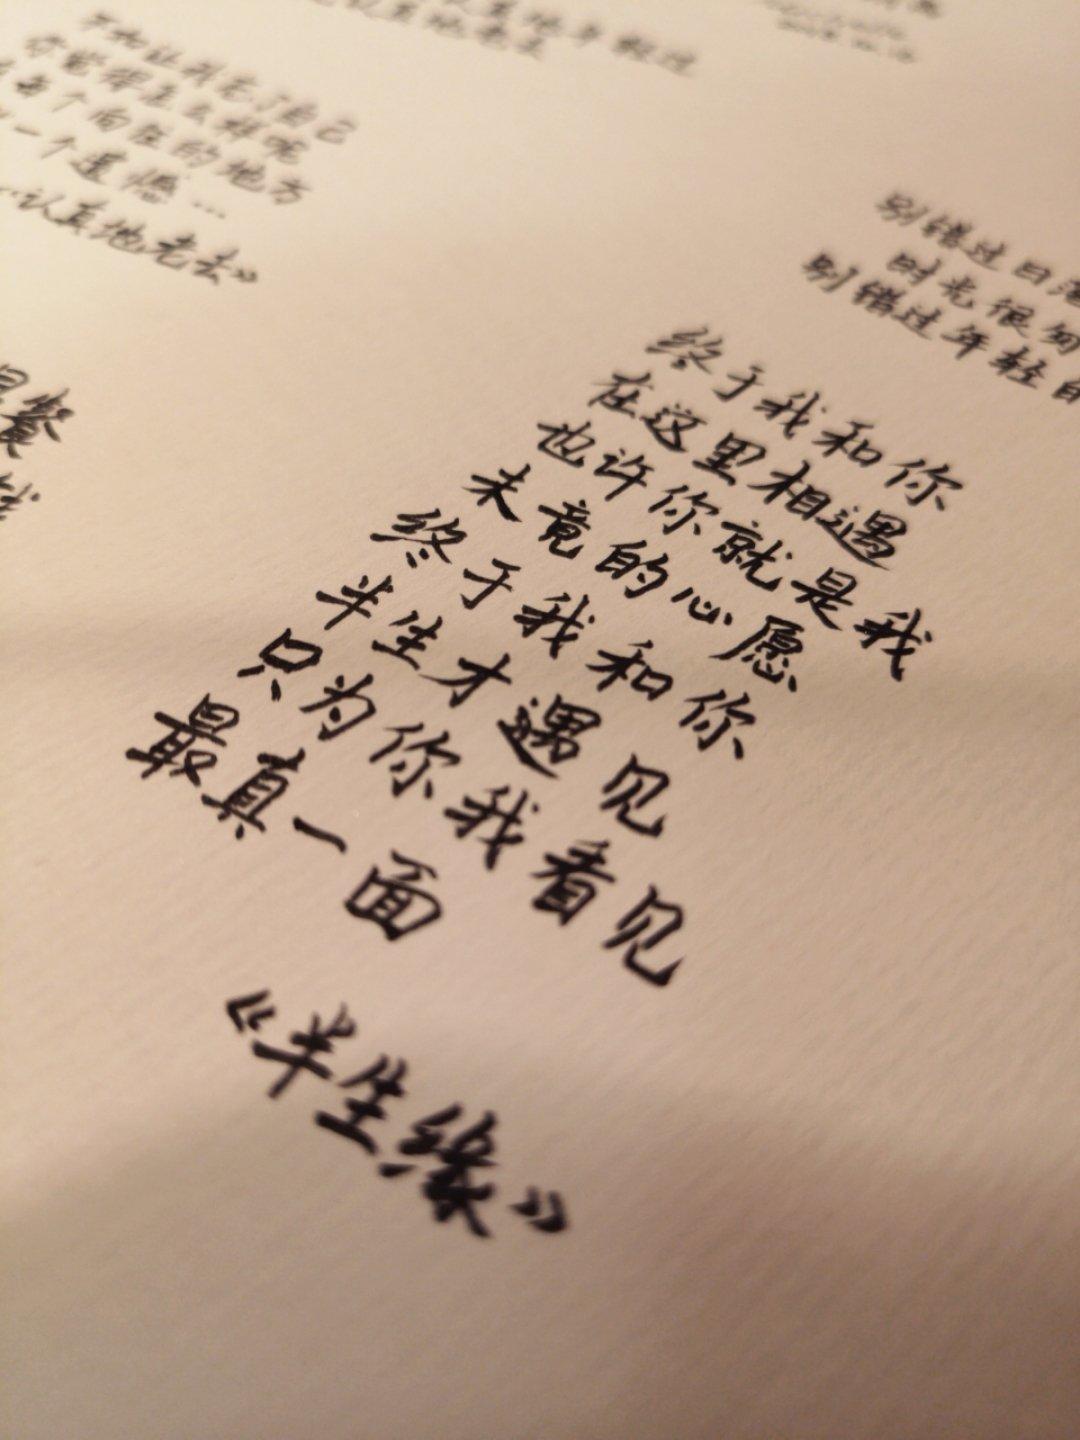 不如让我忘了自己
你觉得怎么样呢
每个向往的地方
一个遗憾…
认真地老去》
别错过日落
时光很匆
别错过年轻的
早餐
终于我和你
在这里相遇
也许你就是我
未竟的心愿
终于我和你
半生才遇见
只为你我看见
最真一面
《半生缘》